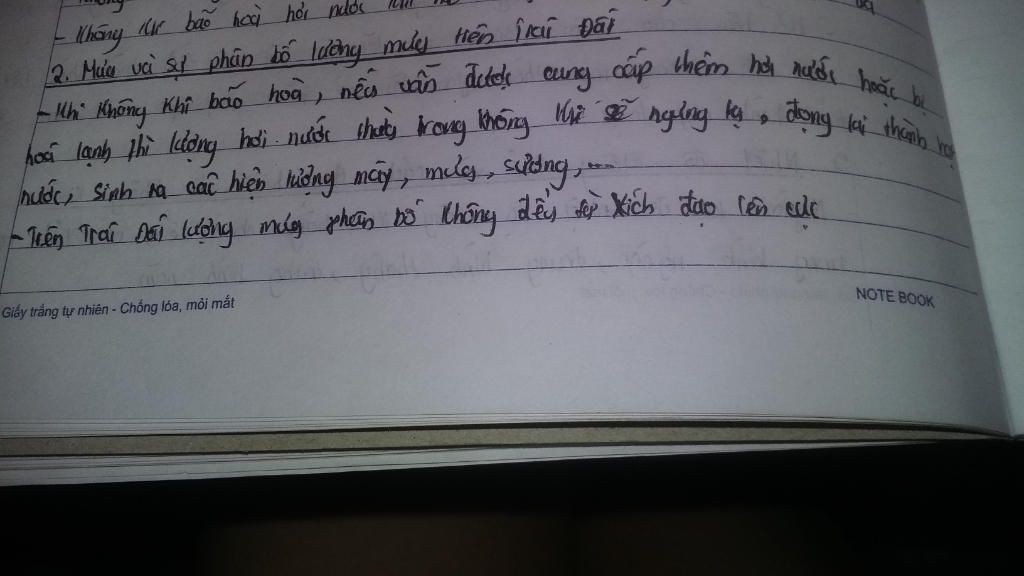 - Không khí bão hoà hơi nước khi
2. Mưa và sự phân bố lượng mưa trên Trái Đất
- Khi không khí bão hoà, nếu vẫn được cung cấp thêm hơi nước hoặc bị
hoá lạnh thì lượng hơi nước thừa trong không khí sẽ ngưng tụ, đọng lại thành hạt
nước, sinh ra các hiện tượng mây, mưa, sương,...
- Trên Trái Đất lượng mưa phân bố không đều từ Xích đạo lên cực
Giấy trắng tự nhiên - Chống lóa, mỏi mắt
NOTE BOOK